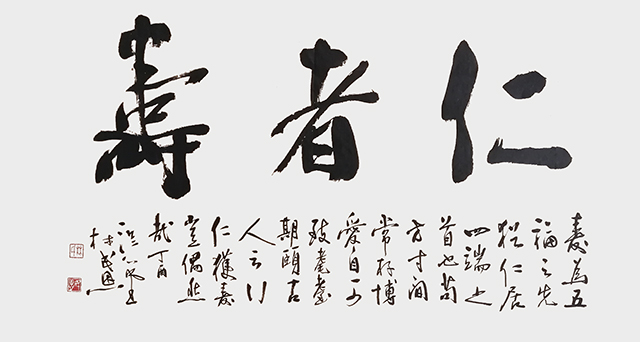 仁者壽
壽為五
福之先
猶仁居
四端之
首也苟
方寸間
常存博
愛自可
致耄耋
期頤古
人云行
仁獲壽
豈偶然
哉丁酉